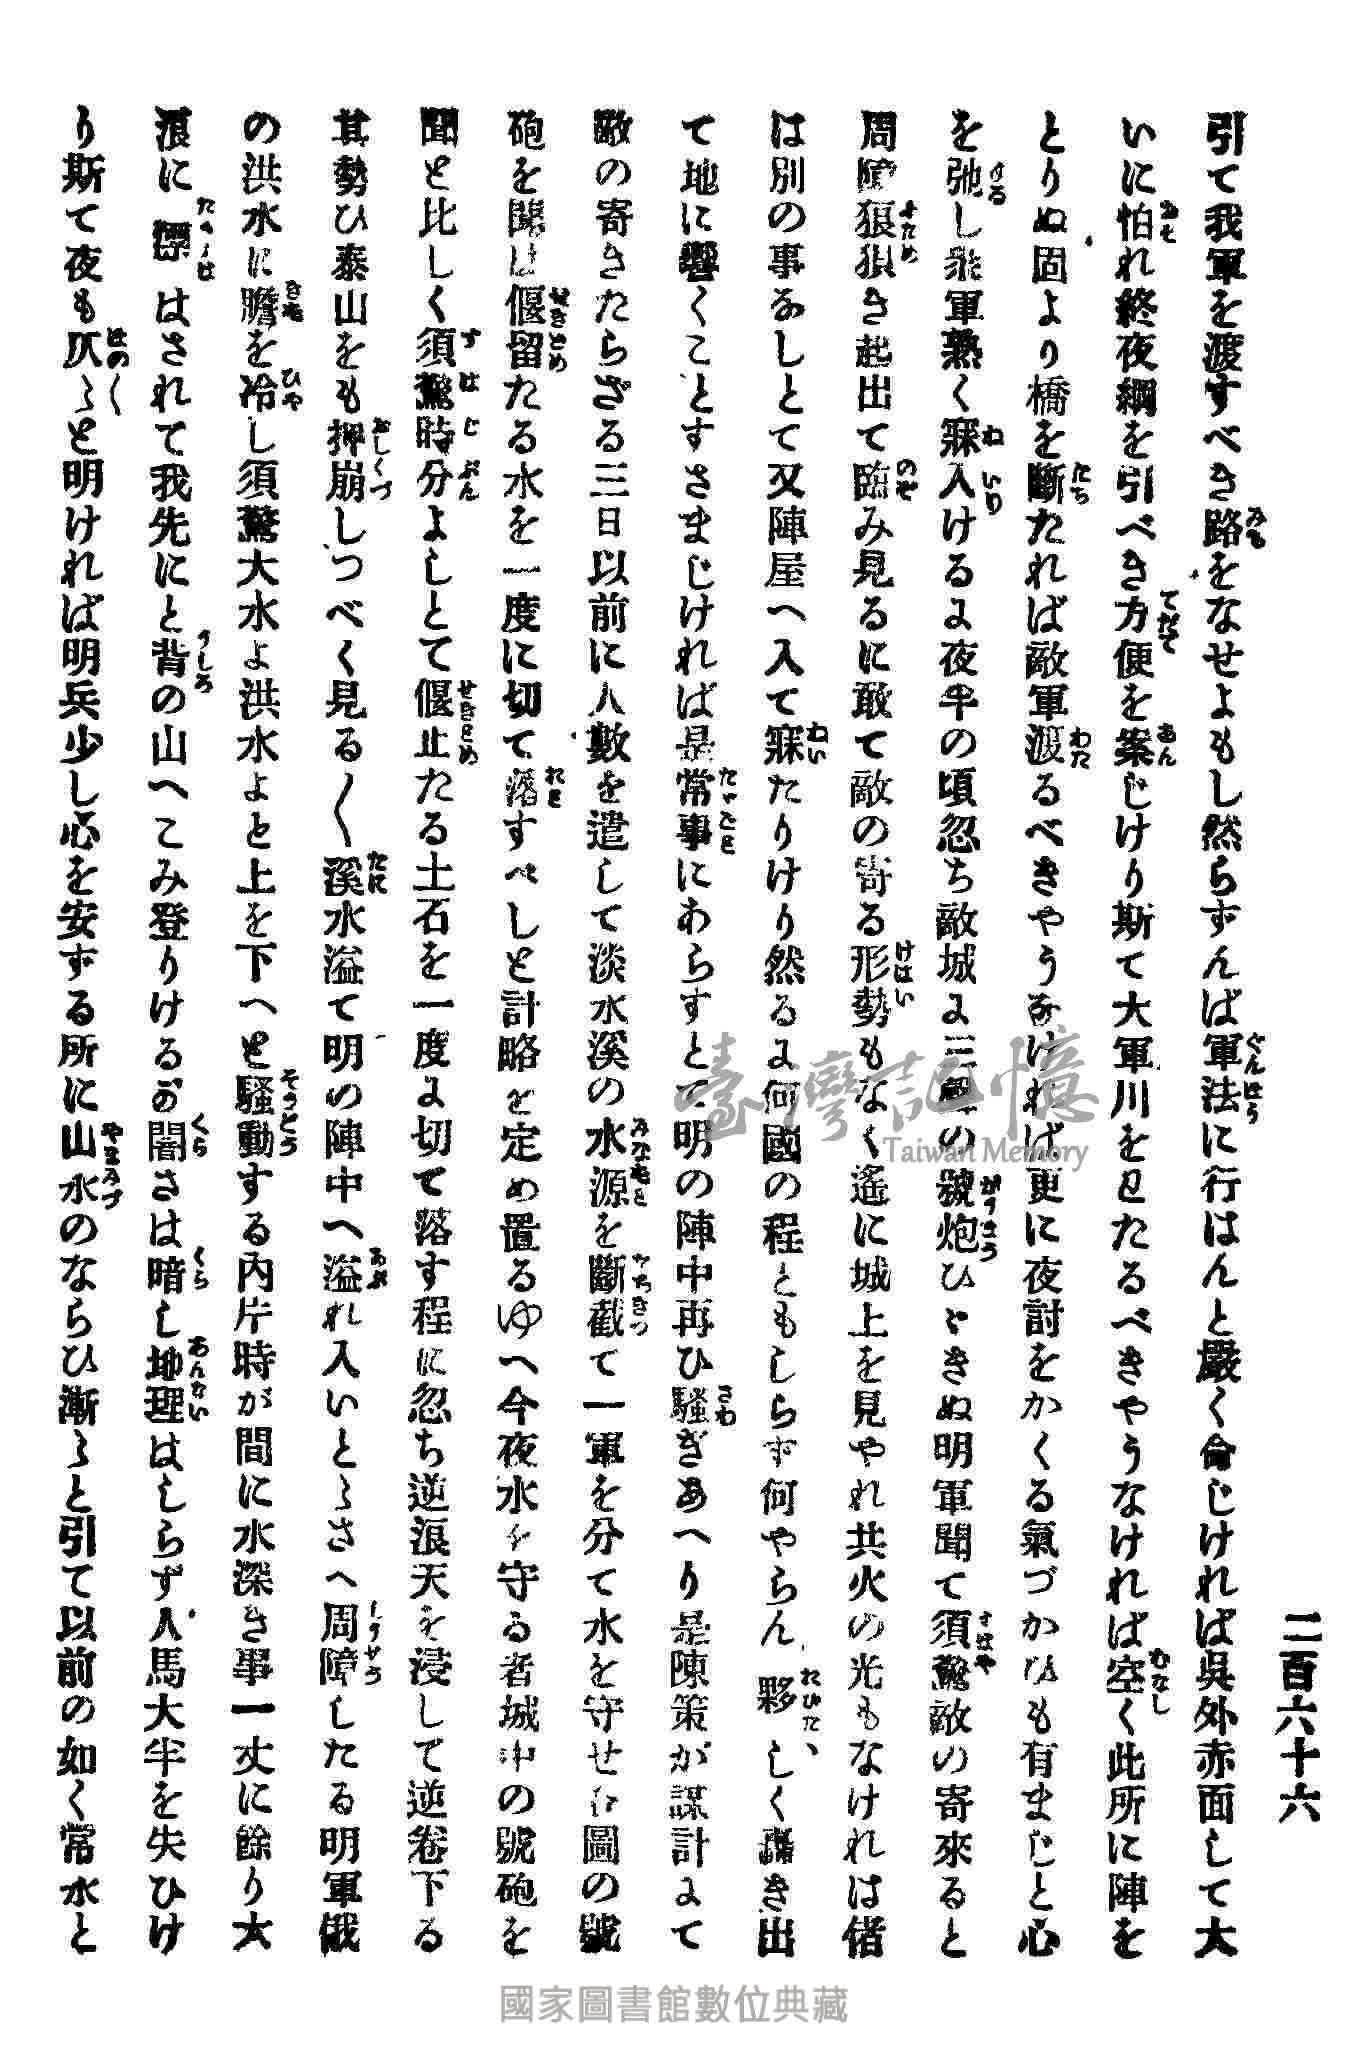 二百六十六
引て我軍を渡すべき路をなせよもし然らずんば軍法に行はんと嚴く命じければ呉外赤面して大
いに怕れ終夜綱を引べき方便を案じけり斯て大軍川をわたるべきやうなければ空く此所に陣を
とりぬ固より橋を斷たれば敵軍渡るべきやうなければ更に夜討をかくる氣づかひも有まじと心
を弛し衆軍熟く寐入けるに夜半の頃忽ち敵城に三聲の號炮ひゞきぬ明軍聞て須驚敵の寄來ると
周障狼狽き起出て臨み見るに敢て敵の寄る形勢もなく遙に城上を見やれ共火の光もなけれは偖
は別の事なしとて又陣屋へ入て寐たりけり然るに何國の程ともしらず何やらん夥しく轟き出
て地に響くことすさまじければ是常事にあらすとて明の陣中再ひ騷ぎあへり是陳策が謀計にて
敵の寄きたらざる三日以前に人數を遣して淡水溪の水源を斷截て一軍を分て水を守せ合圖の號
砲を聞は偃留たる水を一度に切て落すべしと計略を定め置るゆへ今夜水を守る者城中の號砲を
聞と比しく須驚時分よしとて偃止たる土石を一度に切て落す程に忽ち逆浪天を浸して逆卷下る
其勢ひ泰山をも押崩しつべく見る〱溪水溢て明の陣中へ溢れ入いとゝさへ周障したる明軍俄
の洪水に膽を冷し須驚大水よ洪水よと上を下へと騷動する内片時が間に水深き事一丈に餘り大
浪に漂はされて我先にと背の山へこみ登りけるが闇さは暗し地理はしらず人馬大半を失ひけ
り斯て夜も仄〻と明ければ明兵少し心を安ずる所に山水のならひ漸〻と引て以前の如く常水と
臺灣記憶
Taiwan Memory
國家圖書館數位典藏